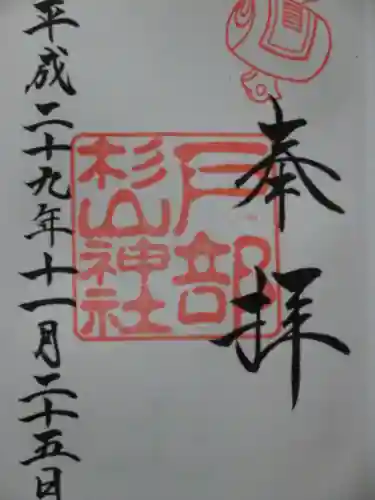 奉拝
戸部
杉山神社
平成二十九年十一月二十五日